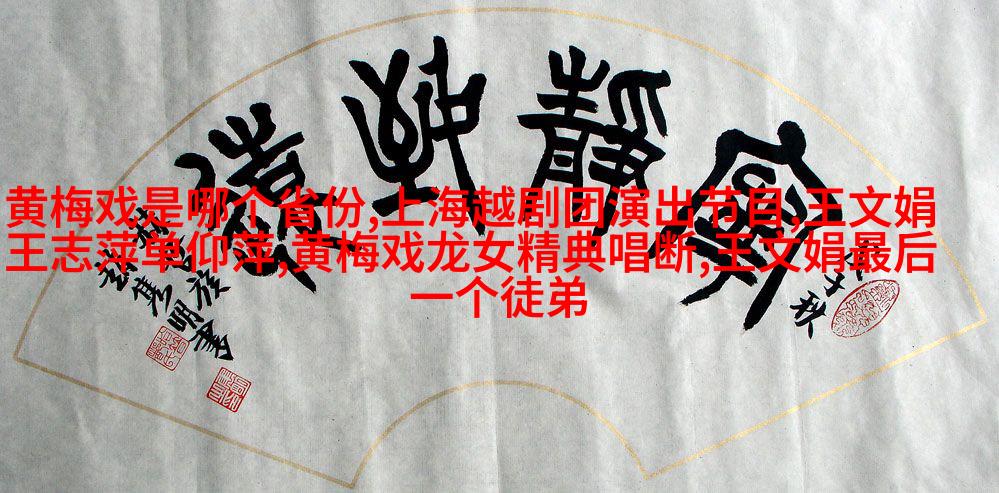 寧靜致遠
黄梅戏是哪个省份,上海越剧团演出节目,王文娟
王志萍单仰萍,黄梅戏龙女精典唱断,王文娟最后
一个徒弟